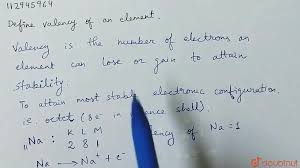 112945964
Define valency of an element.
Valency is the number of electrons an
element can lose or gain to attain
stability
To attain most stable electronic configuration
i.e. octet (8e⁻ in ence shell).
11Na: K L M ency of Na = 1
2 8 1
Na → Na⁺ + e⁻
doubtnut